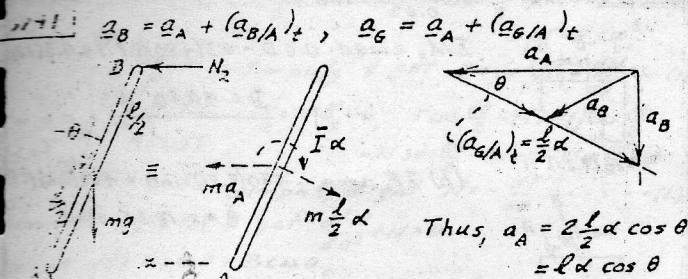 a_B = a_A + (a_B/A)_t , a_G = a_A + (a_G/A)_t
B N_2
l/2
θ
mg
≡
Ī α
m a_A
m l/2 α
A
a_A
θ
a_G
a_B
(a_G/A)_t = l/2 α
Thus, a_A = 2 l/2 α cos θ
= l α cos θ